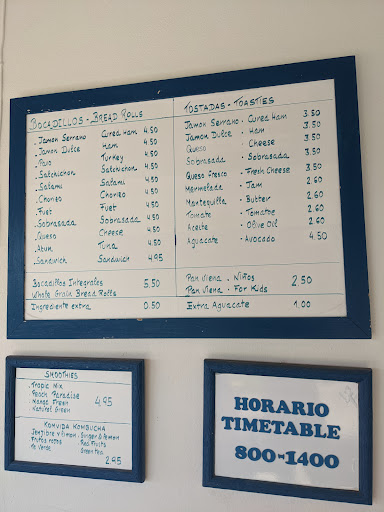 BOCADILLOS - BREAD ROLLS
. Jamon Serrano Curea Ham 4.50
. Jamon Dulce Ham 4.50
. Pavo Turkey 4.50
. Salchichon Salchichon 4.50
. Salami Salami 4.50
. Chorizo Chorizo 4.50
. Fuet Fuet 4.50
. Sobrasada Sobrasada 4.50
. Queso Cheese 4.50
. Atun Tuna 4.50
. Sandwich Sandwich 4.95
Bocadillos Integrales 5.50
Whole Grain Bread Rolls
Ingrediente extra 0.50
TOSTADAS - TOASTIES
Jamon Serrano . Curea Ham 3.50
Jamon Dulce . Ham 3.50
Queso . Cheese 3.50
Sobrasada . Sobrasada 3.50
Queso Fresco . Fresh Cheese 3.50
Marmelada . Jam 2.60
Mantequilla . Butter 2.60
Tomate . Tomatoe 2.60
Aceite . Olive Oil 2.60
Aguacate . Avocado 4.50
Pan Viena . Niños 2.50
Pan Viena . For Kids
Extra Aguacate 1.00
SMOOTHIES
. Tropic Mix
Peach Paradise 4.95
Mango Green
Natural Green
KOMVIDA KOMBUCHA
Jengibre y limon . Ginger & lemon
Frutos rojos Red Fruits
Te Verde Green tea
2.95
HORARIO
TIMETABLE
800-1400